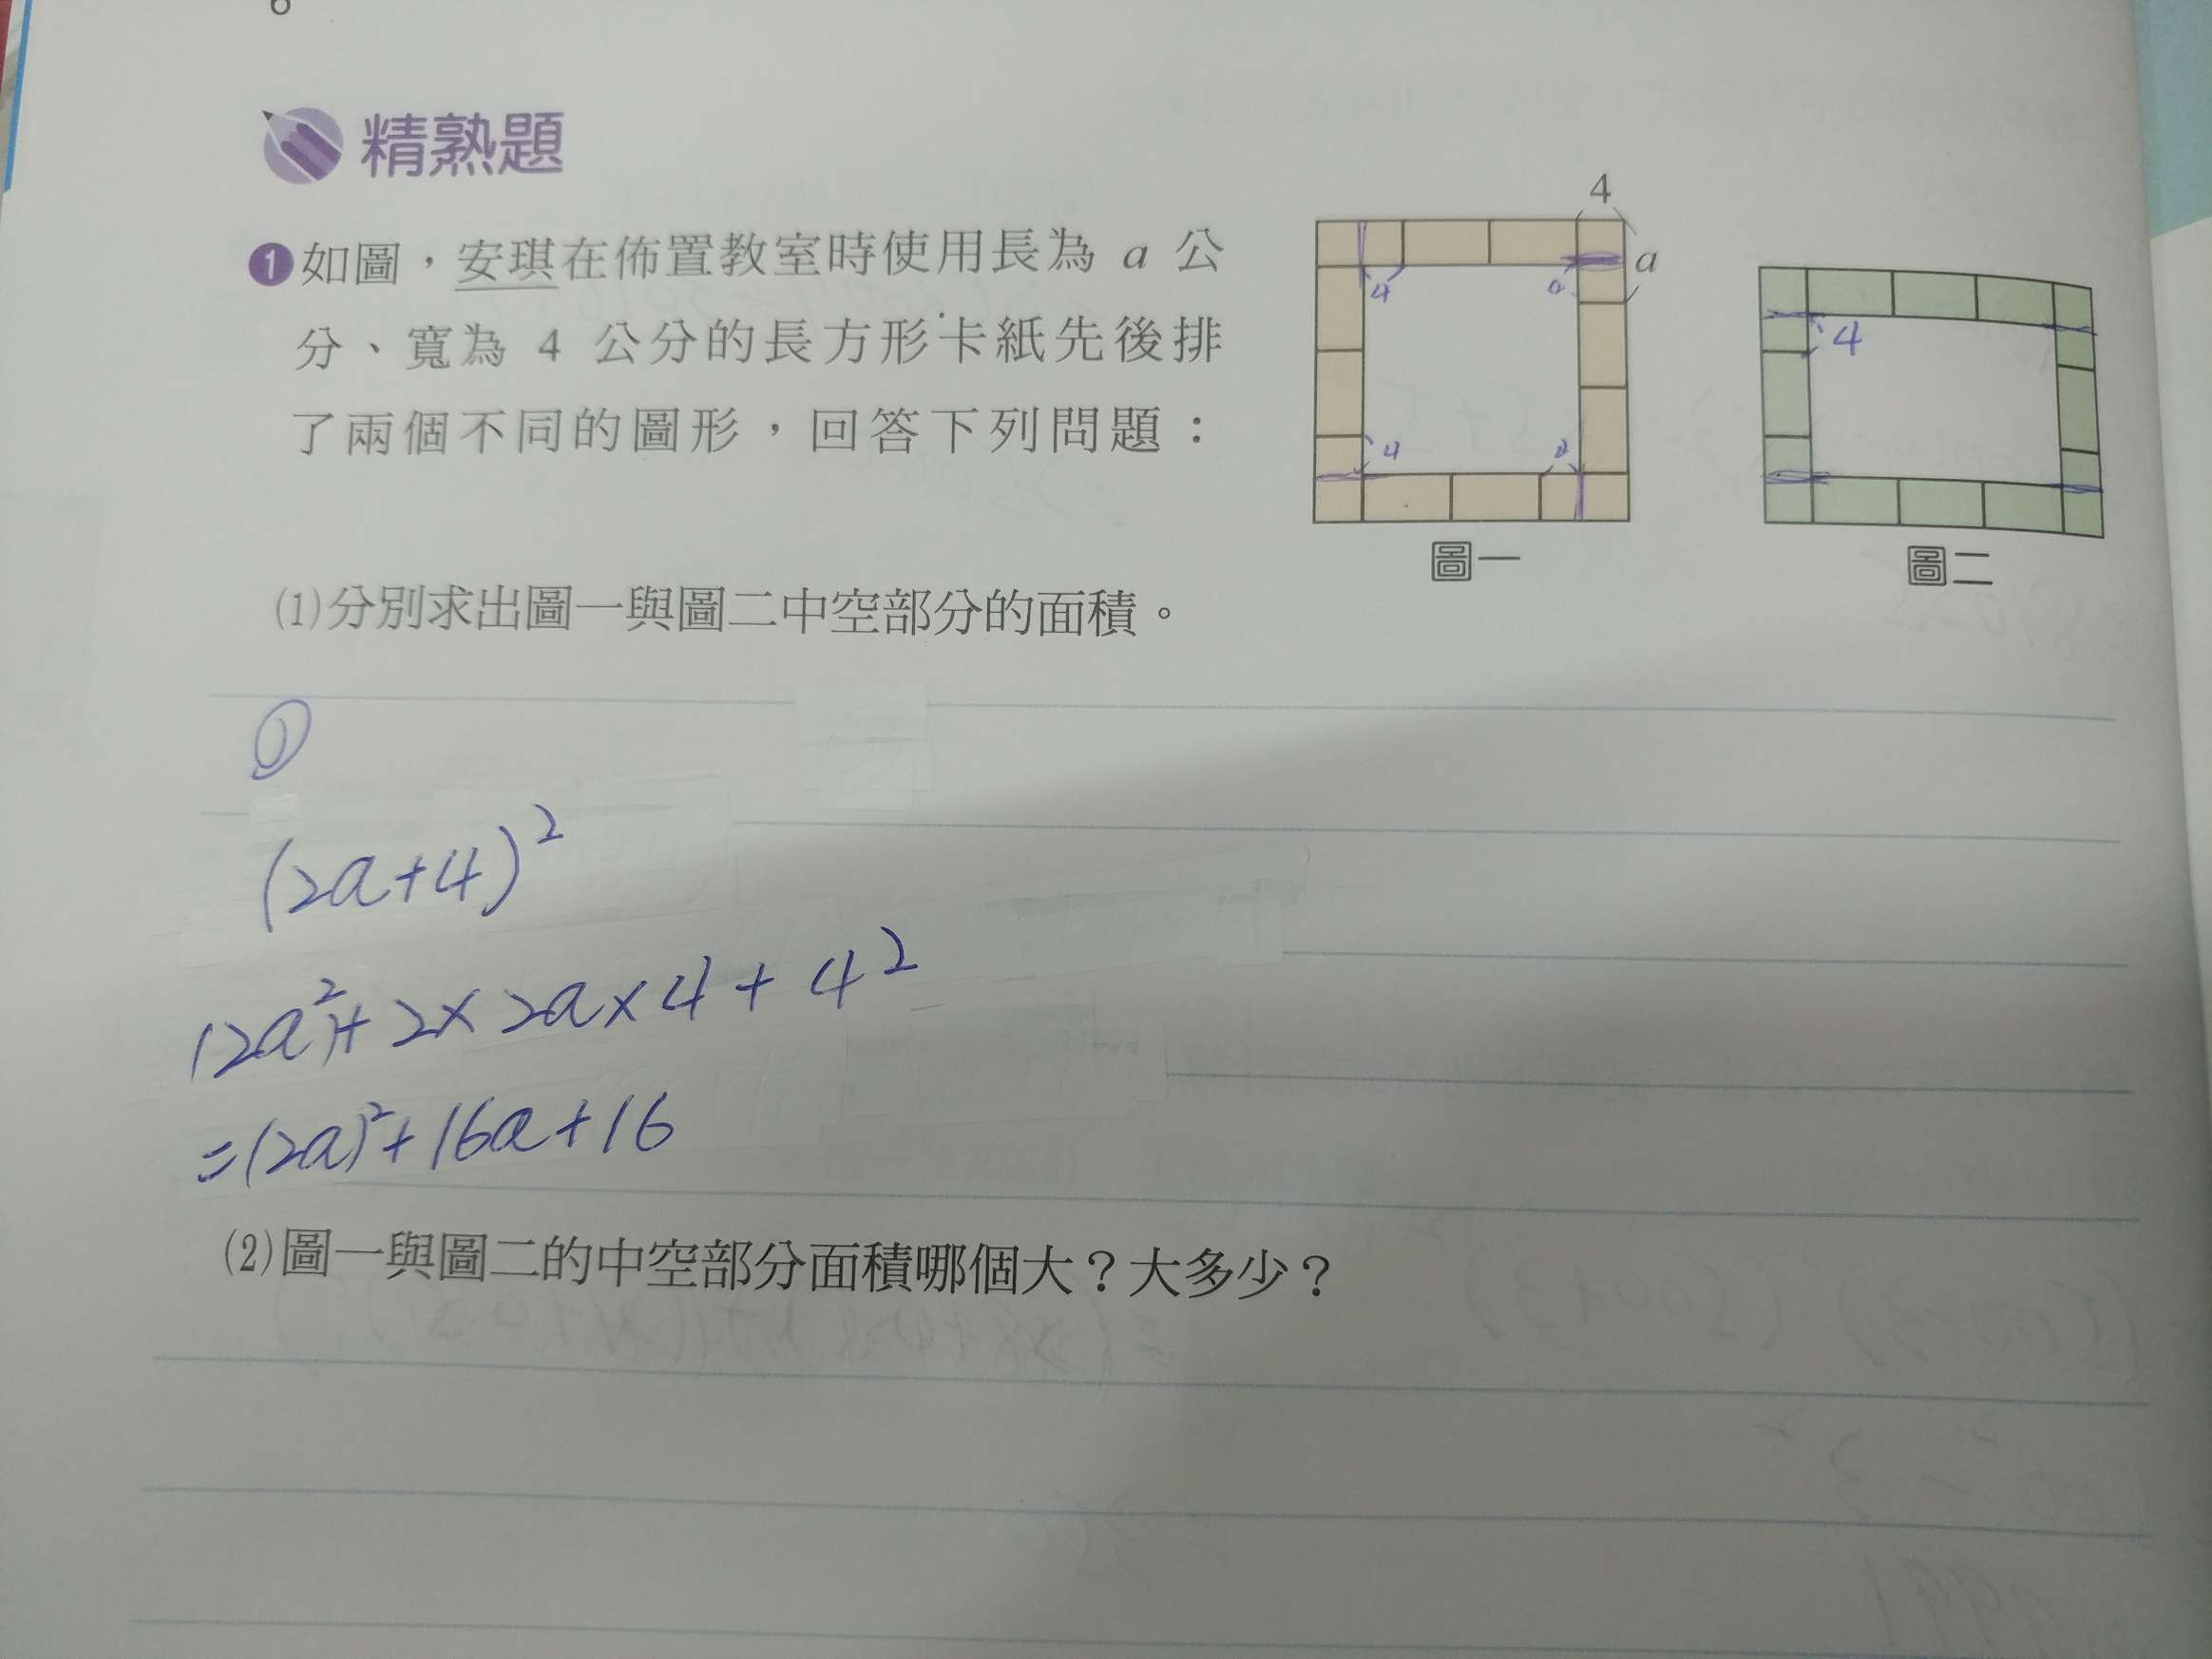 6
精熟題
1 如圖，安琪在佈置教室時使用長為 a 公
分、寬為 4 公分的長方形卡紙先後排
了兩個不同的圖形，回答下列問題：
4
a
4
4
圖一
4
圖二
(1)分別求出圖一與圖二中空部分的面積。
①
(2a+4)²
(2a)²+2×2a×4+4²
=(2a)²+16a+16
(2)圖一與圖二的中空部分面積哪個大？大多少？